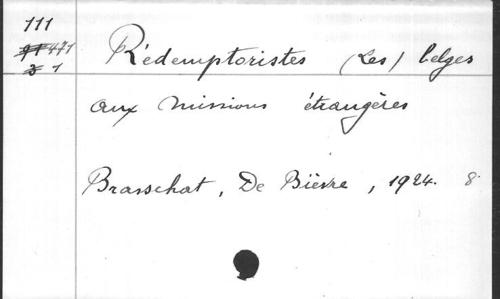 111
471
1
Rédemptoristes (Les) belges
aux missions étrangères
Brasschat, De Bièvre, 1924. 8°